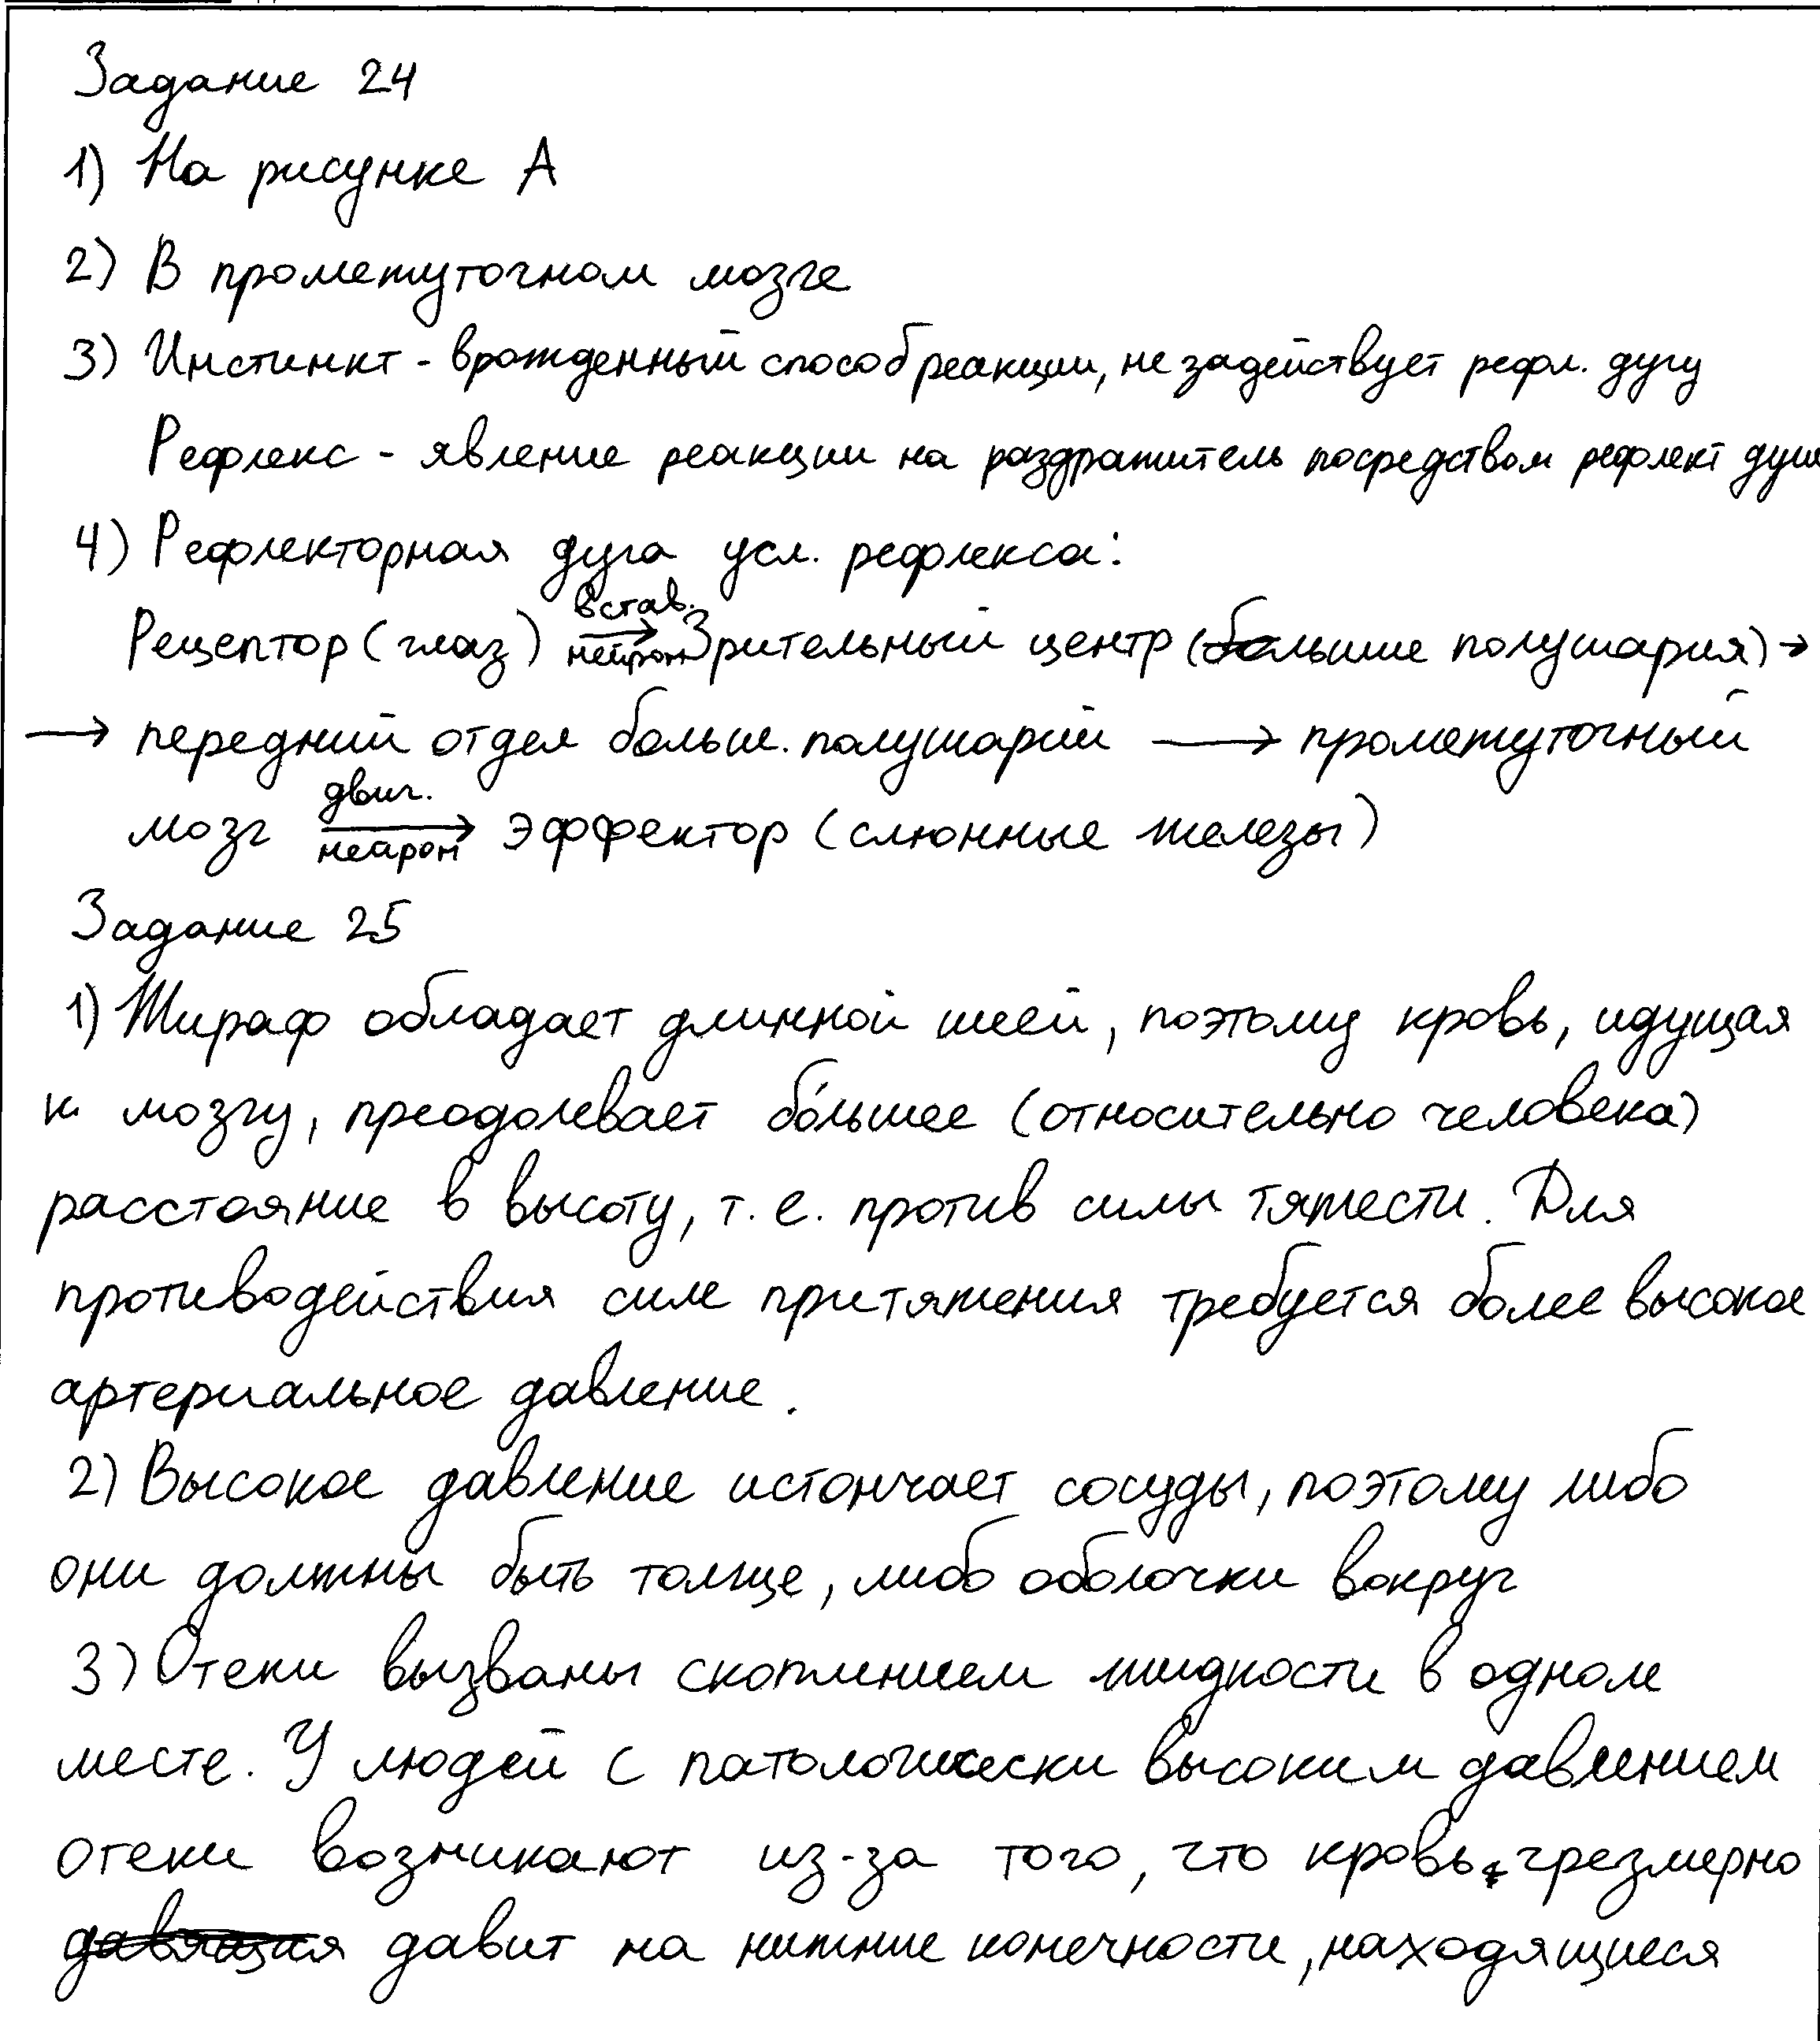 Задание 24
1) На рисунке А
2) В промежуточном мозге
3) Инстинкт - врожденный способ реакции, не задействует рефл. дугу
Рефлекс - явление реакции на раздражитель посредством рефлект дуги
4) Рефлекторная дуга усл. рефлекса:
встав.
Рецептор (глаз) → Зрительный центр (большие полушария) →
нейрон
→ передний отдел больш. полушарий → промежуточный
двиг.
мозг → эффектор (слюнные железы)
нейрон
Задание 25
1) Жираф обладает длинной шеей, поэтому кровь, идущая
к мозгу, преодолевает бо́льшее (относительно человека)
расстояние в высоту, т. е. против силы тяжести. Для
противодействия силе притяжения требуется более высокое
артериальное давление.
2) Высокое давление истончает сосуды, поэтому либо
они должны быть толще, либо оболочки вокруг
3) Отеки вызваны скоплением жидкости в одном
месте. У людей с патологически высоким давлением
отеки возникают из-за того, что кровь чрезмерно
давящая давит на нижние конечности, находящиеся